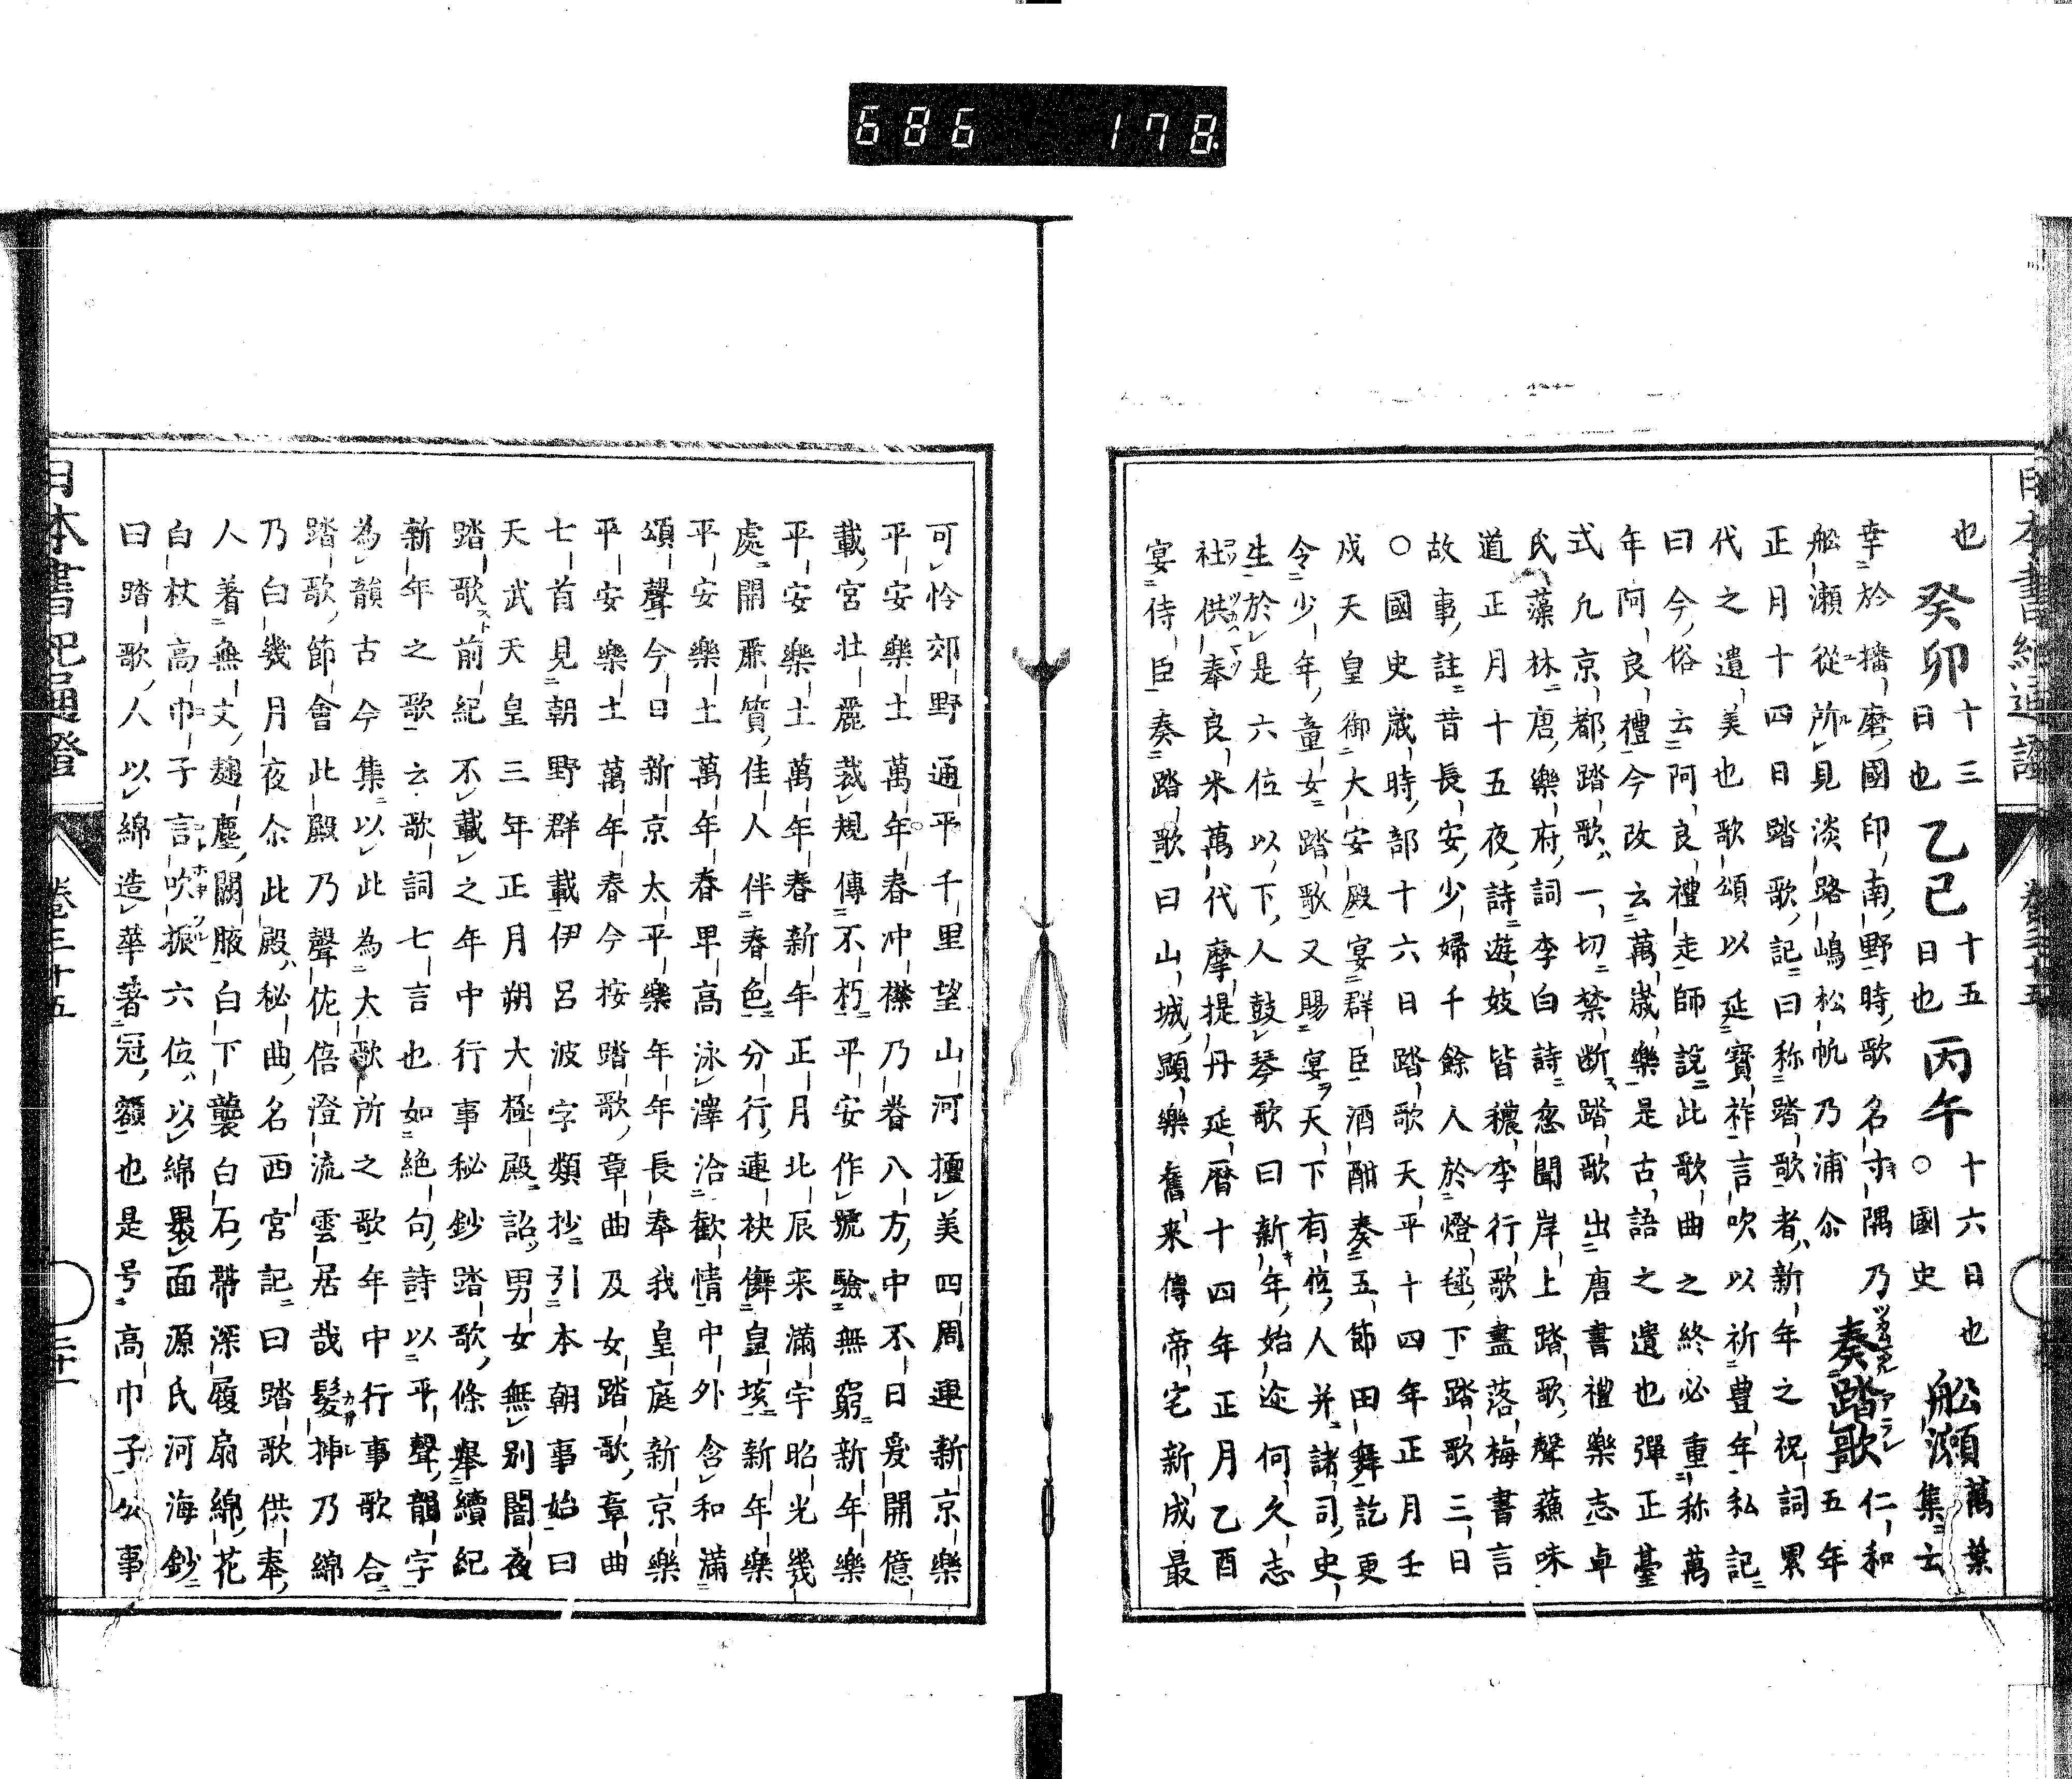 686 178
日本書紀通證
也 癸卯 十三日也 乙巳 十五日也 丙午 十六日也 ○國史 船瀬 萬葉集云
幸於播磨國印南野時歌名寸隅乃
船瀬從所見淡路嶋松帆乃浦尒 奏踏歌 仁和五年
正月十四日踏歌記曰称踏歌者新年之祝詞累
代之遺美也歌頌以延寶祚言吹以祈豊年私記
曰今俗云阿良礼走師說此歌曲之終必重称萬
年阿良禮今改云萬歲樂是古語之遺也彈正臺
式凡京都踏歌一切禁断踏歌出唐書禮樂志卓
氏藻林唐樂府詞李白詩忽聞岸上踏歌聲蘓味
道正月十五夜詩遊妓皆穠李行歌盡落梅書言
故事註昔長安少婦千餘人於燈毬下踏歌三日
○國史歲時部十六日踏歌天平十四年正月壬
戌天皇御大安殿宴群臣酒酣奏五節田舞訖更
令少年童女踏歌又賜宴天下有位人并諸司史
生於是六位以下人鼓琴歌曰新年始迩何久志
社供奉良米萬代摩提丹延暦十四年正月乙酉
宴侍臣奏踏歌曰山城顯樂舊来傳帝宅新成最
可怜郊野通平千里望山河擅美四周連新京樂
平安樂土萬年春冲襟乃眷八方中不日爰開億
載宮壯麗裁規傳不朽平安作號驗無窮新年樂
平安樂土萬年春新年正月北辰来滿宇昭光幾
處開麗質佳人伴春色分行連袂儛皇垓新年樂
平安樂土萬年春早高泳澤洽歡情中外含和滿
頌聲今日新京太平樂年年長奉我皇庭新京樂
平安樂土萬年春今按踏歌章曲及女踏歌章曲
七首見朝野群載伊呂波字類抄引本朝事始曰
天武天皇三年正月朔大極殿詔男女無別闇夜
踏歌前紀不載之年中行事秘鈔踏歌條舉續紀
新年之歌云歌詞七言也如絶句詩以平聲韻字
為韻古今集以此為大歌所之歌年中行事歌合
踏歌節會此殿乃聲佐倍澄流雲居哉髮揷乃綿
乃白幾月夜尒此殿秘曲名西宮記曰踏歌供奉
人着無文麹塵闕腋白下襲白石帶深履扇綿花
白杖高巾子言吹振六位以綿裹面源氏河海鈔
曰踏歌人以綿造華著冠額也是号高巾子公事
日本書紀通證 卷三十五